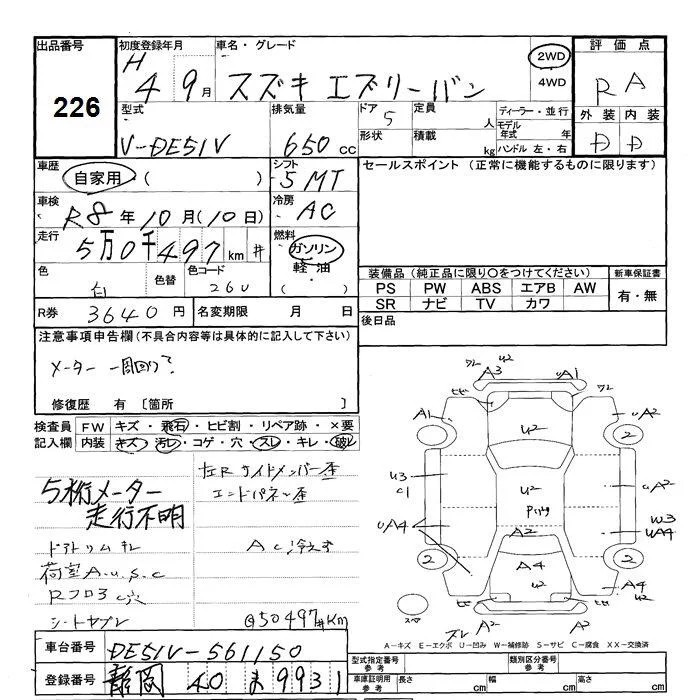 出品番号 初度登録年月 車名・グレード 評価点
226 H 4 9月 スズキ エブリーバン 2WD 4WD R A
型式 排気量 ドア 定員 ディーラー・並行 外装 内装
V-DE51V 650cc 5 人 モデル年式 年 D D
形状 積載 kg ハンドル 左・右
車歴 自家用・( ) シフト 5MT セールスポイント (正常に機能するものに限ります)
車検 R8年10月(10日) 冷房 AC
走行 5万0千497km # 燃料 ガソリン
軽油・( )
色 白 色替 色コード 26U
装備品(純正品に限り○をつけてください) 新車保証書
PS PW ABS エアB AW 有・無
SR ナビ TV カワ
R券 3640円 名変期限 月 日
後日品
注意事項申告欄(不具合内容等は具体的に記入して下さい)
メーター 一周回り?
修復歴 有 [箇所 ]
検査員 FW キズ・飛石・ヒビ割・リペア跡・×要
記入欄 内装 キズ・汚レ・コゲ・穴・スレ・キレ・破レ
5桁メーター
走行不明
左Rサイドメンバー歪
エンドパネル歪
ドアトリムキレ
AC冷えず
荷室A.U.S.C
Rフロア3C穴
シートヤブレ
@50497#km
A3 U2 UA1
ヒビ ワレ ワレ
A1 U2 UA2
2
U3 C1 U2 UA2
Pいたみ W3
UA4 A2 UA4
2 A4 2
U2 U2 A4
スマ A2 ズレ A2
A-キズ E-エクボ U-凹み W-補修跡 S-サビ C-腐食 XX-交換済
車台番号 DE51V-561150
登録番号 静岡 40 ま 9931
型式指定番号 参考 類別区分番号 参考
車庫証明用 参考 長さ cm 幅 cm 高さ cm